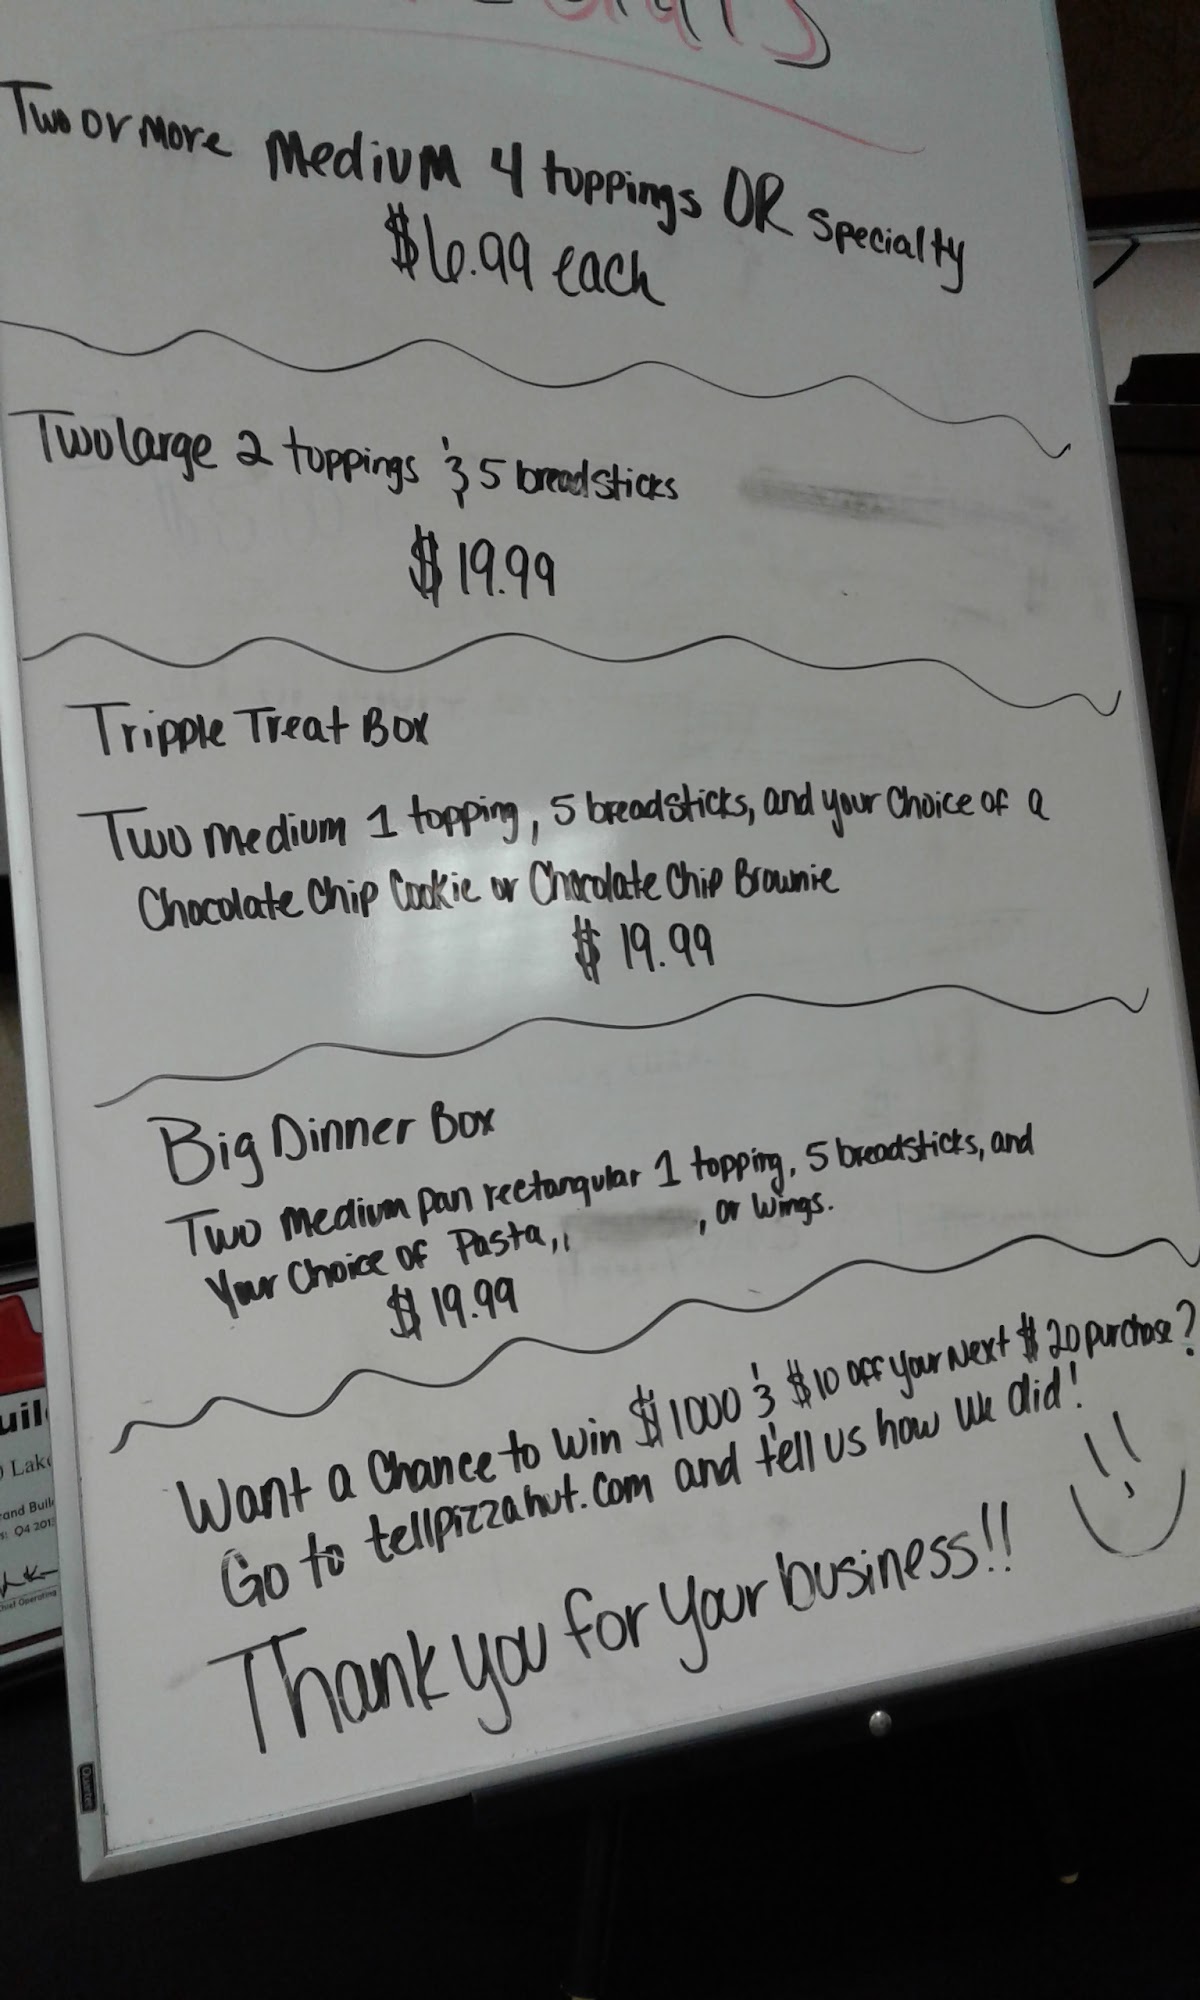 Two or more Medium 4 toppings OR specialty
$6.99 each
Two large 2 toppings & 5 breadsticks
$19.99
Tripple Treat Box
Two medium 1 topping, 5 breadsticks, and your choice of a
Chocolate Chip Cookie or Chocolate Chip Brownie
$19.99
Big Dinner Box
Two medium pan rectangular 1 topping, 5 breadsticks, and
your choice of Pasta, , or wings.
$19.99
Want a Chance to win $1000 & $10 off your next $20 purchase?
Go to tellpizzahut.com and tell us how we did!
Thank you for your business!!
Lake
rand Buil
Q4 201
Chief Operating
Quartet